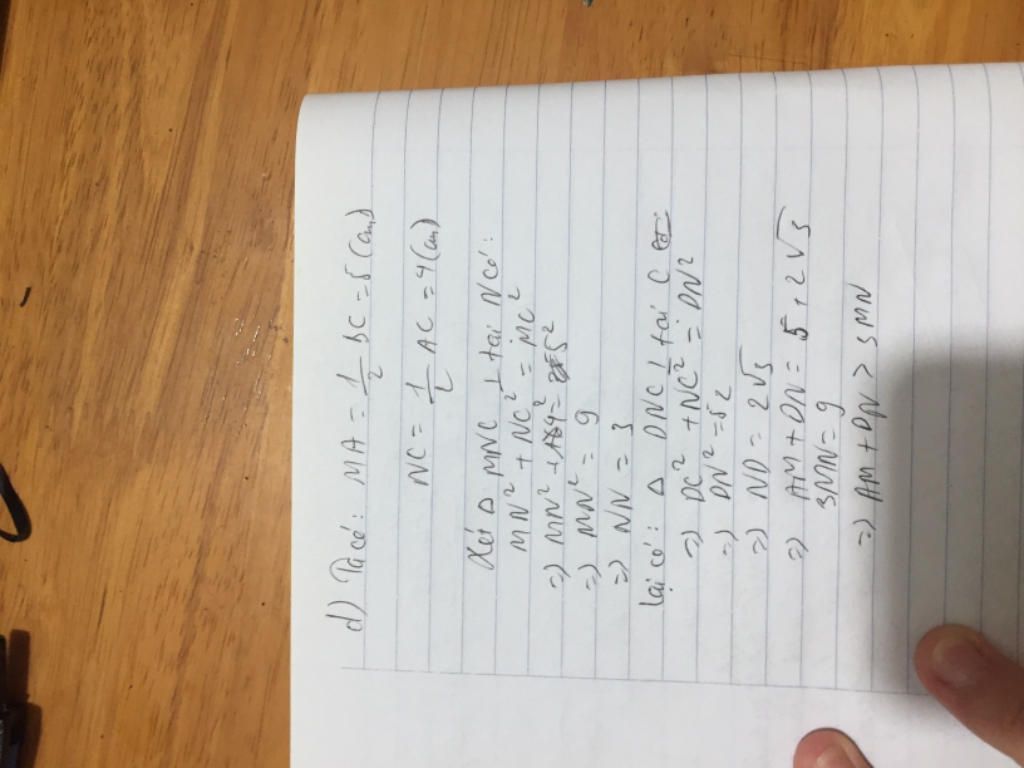 d) Ta có: MA = 1/2 BC = 5 (cm)
NC = 1/2 AC = 4 (cm)
Xét Δ MNC ⊥ tại N có:
MN² + NC² = MC²
=) MN² + 4² = 5²
=) MN² = 9
=) NN = 3
lại có: Δ DNC ⊥ tại C
=) DC² + NC² = DN²
=) DN² = 52
=) ND = 2√3
=) AM + DN = 5 + 2√3
3MN = 9
=) AM + DN > 3MN